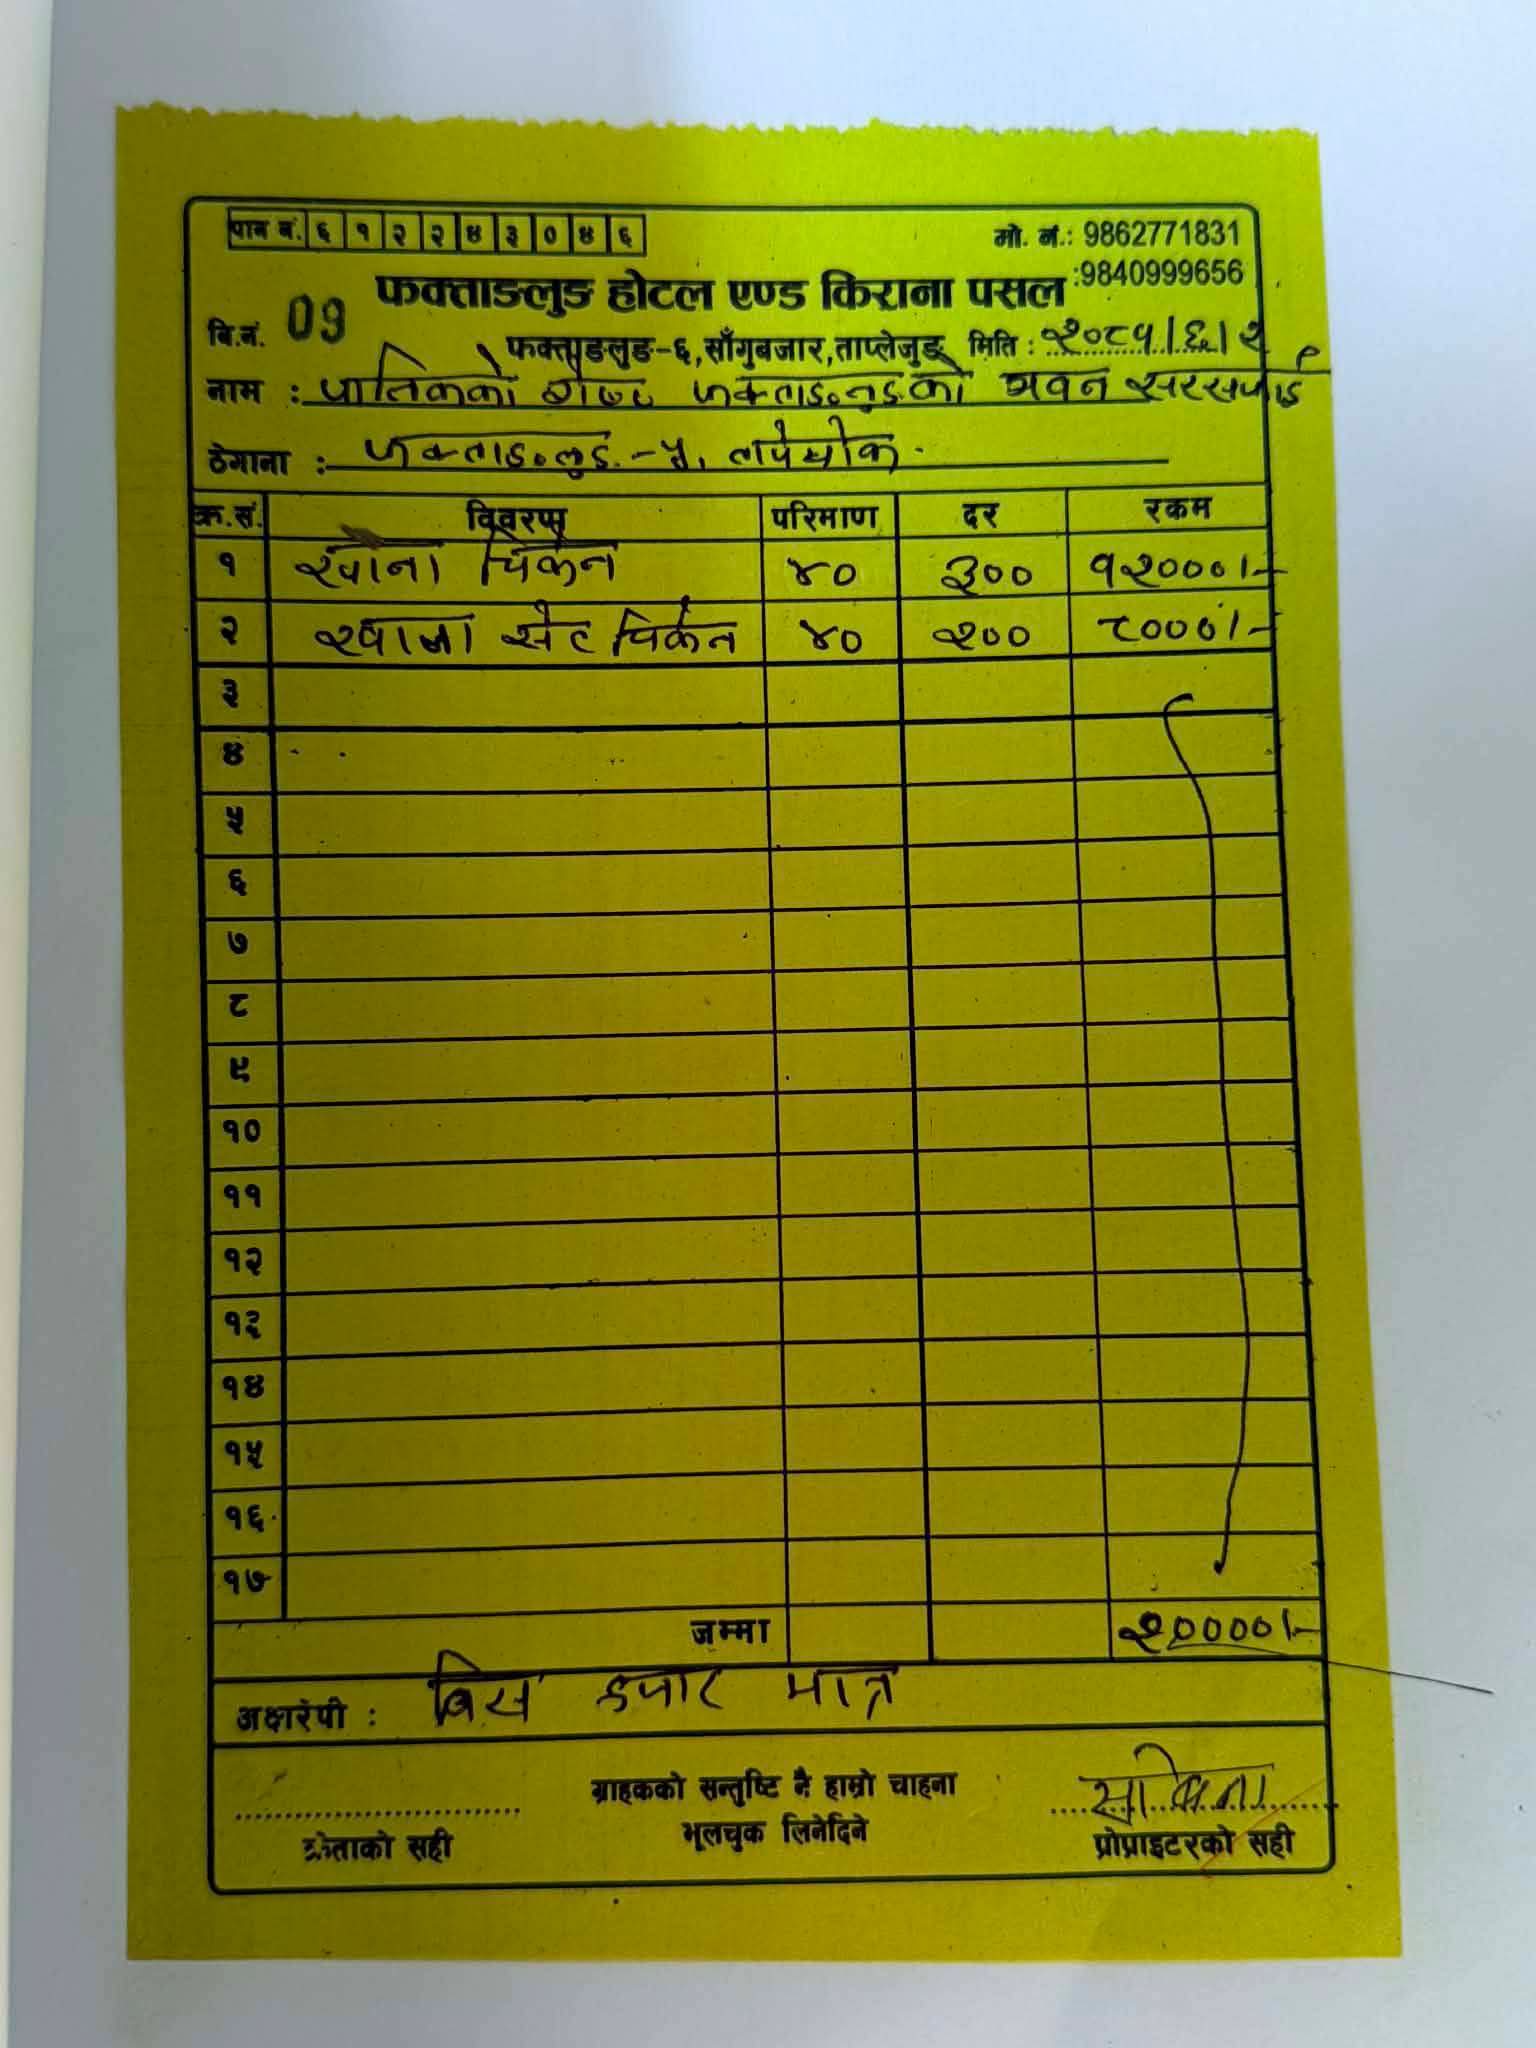 पान नं. ६ १ २ २ ४ ३ ० ४ ६
मो. नं.: 9862771831
:9840999656
फक्ताङलुङ होटल एण्ड किराना पसल
बि.नं. 09
फक्ताङलुङ-६, साँगुबजार, ताप्लेजुङ मिति : २०८५।६।२
नाम : फक्ताङलुङको भवन सरसफाई
ठेगाना : फक्ताङलुङ-५,
क्र.सं. विवरण परिमाण दर रकम
१ खाना चिकेन ४० ३०० १२०००।-
२ खाजा सेट चिकेन ४० २०० ८०००।-
३
४
५
६
७
८
९
१०
११
१२
१३
१४
१५
१६
१७
जम्मा २००००।-
अक्षरेपी : बिस हजार मात्र
ग्राहकको सन्तुष्टि नै हाम्रो चाहना
भूलचुक लिनेदिने
क्रेताको सही
प्रोप्राइटरको सही